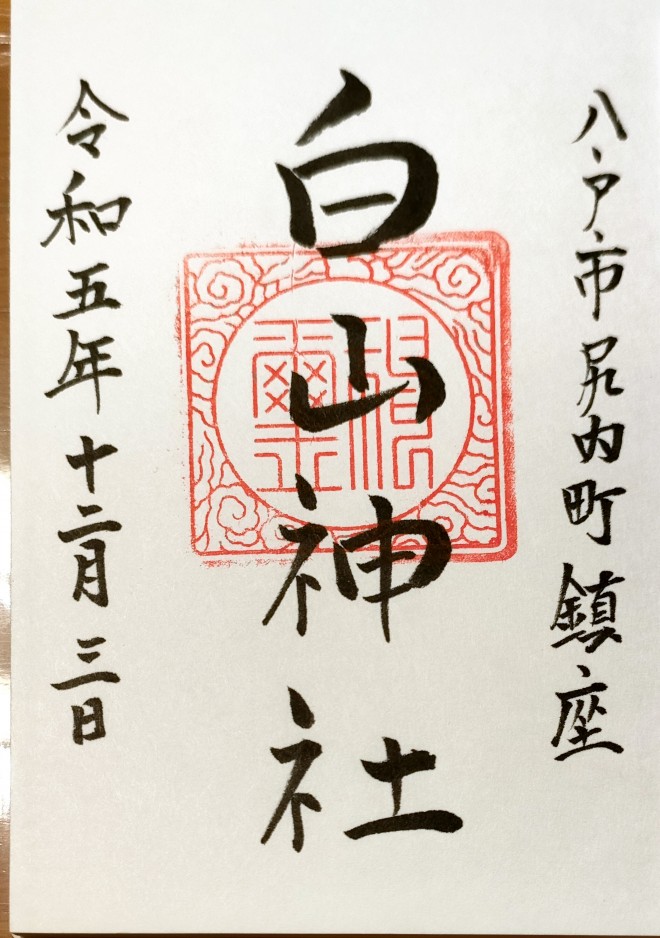 八戸市尻内町鎮座
白山神社
令和五年十二月三日